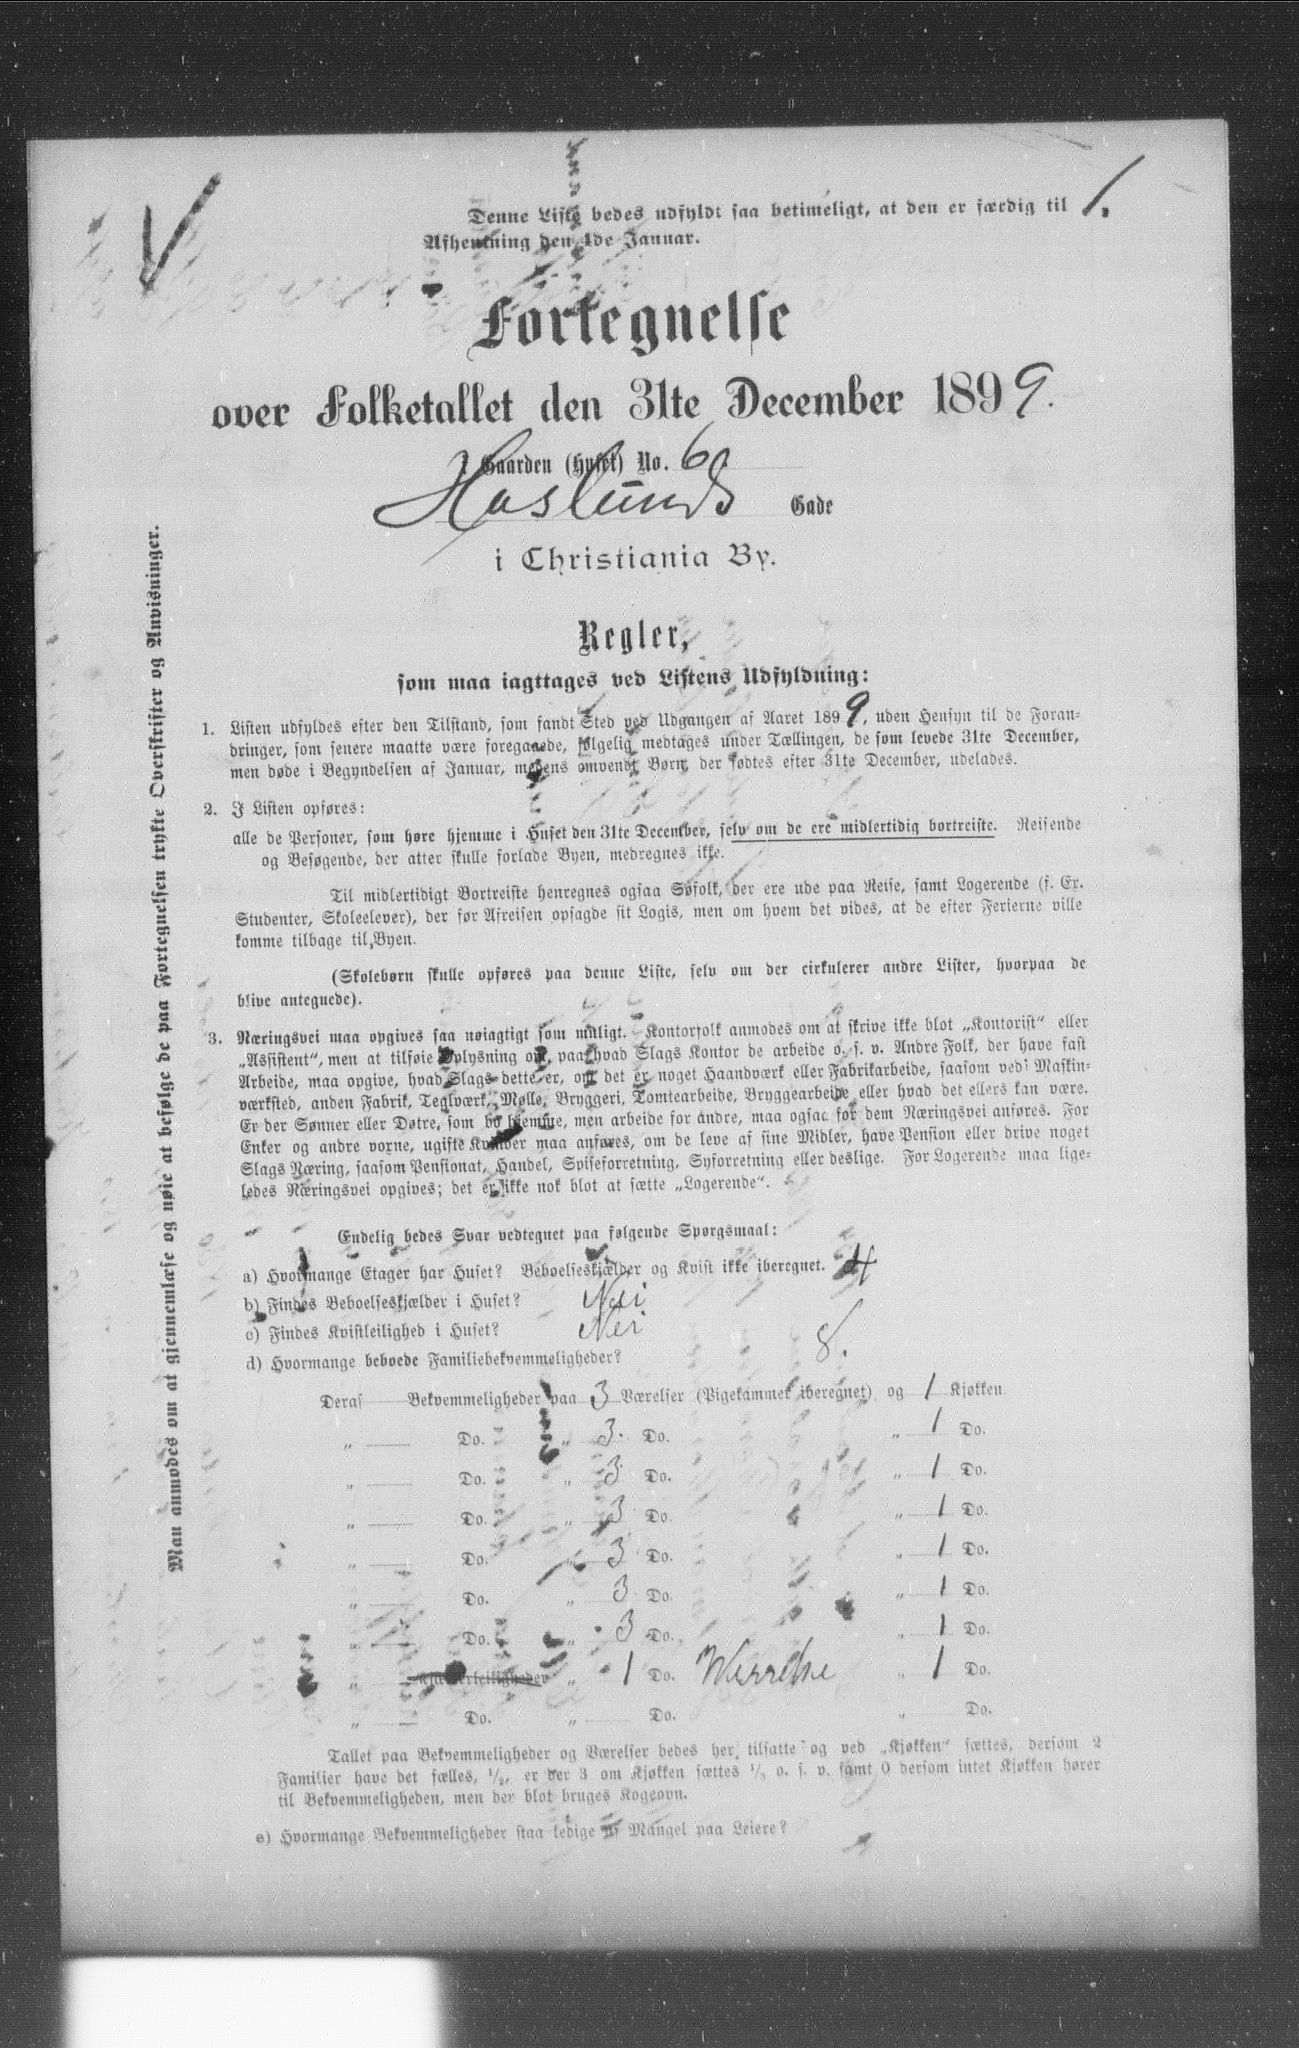 1.
Denne Liste bedes udfyldt saa betimeligt, at den er færdig til
Afhentning den 4de Januar.
Fortegnelse
over Folketallet den 31te December 1899.
i Gaarden (Huset) No. 6
Haslunds Gade
i Christiania By.
Regler,
som maa iagttages ved Listens Udfyldning:
1. Listen udfyldes efter den Tilstand, som fandt Sted ved Udgangen af Aaret 1899, uden Hensyn til de Foran-
dringer, som senere maatte være foregaaede, følgelig medtages under Tællingen, de som levede 31te December,
men døde i Begyndelsen af Januar, medens omvendt Børn, der fødtes efter 31te December, udelades.
2. I Listen opføres:
alle de Personer, som høre hjemme i Huset den 31te December, selv om de ere midlertidig bortreiste. Reisende
og Besøgende, der atter skulle forlade Byen, medregnes ikke.
Til midlertidigt Bortreiste henregnes ogsaa Søfolk, der ere ude paa Reise, samt Logerende (f. Ex.
Studenter, Skoleelever), der før Afreisen opsagde sit Logis, men om hvem det vides, at de efter Ferierne ville
komme tilbage til Byen.
(Skolebørn skulle opføres paa denne Liste, selv om der cirkulerer andre Lister, hvorpaa de
blive antegnede).
3. Næringsvei maa opgives saa nøiagtigt som muligt. Kontorfolk anmodes om at skrive ikke blot „Kontorist“ eller
„Assistent“, men at tilføie Oplysning om, paa hvad Slags Kontor de arbeide o. s. v. Andre Folk, der have fast
Arbeide, maa opgive, hvad Slags dette er, om det er noget Haandværk eller Fabrikarbeide, saasom ved Maskin-
værksted, anden Fabrik, Teglværk, Mølle, Bryggeri, Tomtearbeide, Bryggearbeide eller hvad det ellers kan være.
Er der Sønner eller Døtre, som bo hjemme, men arbeide for andre, maa ogsaa for dem Næringsvei anføres. For
Enker og andre voxne, ugifte Kvinder maa anføres, om de leve af sine Midler, have Pension eller drive noget
Slags Næring, saasom Pensionat, Handel, Spiseforretning, Syforretning eller deslige. For Logerende maa lige-
ledes Næringsvei opgives; det er ikke nok blot at sætte „Logerende“.
Endelig bedes Svar vedtegnet paa følgende Spørgsmaal:
a) Hvormange Etager har Huset? Beboelseskjælder og Kvist ikke iberegnet. 4
b) Findes Beboelseskjælder i Huset? Nei
c) Findes Kvistleilighed i Huset? Nei
d) Hvormange beboede Familiebekvemmeligheder? 8.
Deraf Bekvemmeligheder paa 3 Værelser (Pigekammer iberegnet) og 1 Kjøkken
„ Do. „ 3. Do. „ 1 Do.
„ Do. „ 3 Do. „ 1 Do.
„ Do. „ 3 Do. „ 1 Do.
„ Do. „ 3 Do. „ 1 Do.
„ Do. „ 3 Do. „ 1 Do.
„ Do. „ 3 Do. „ 1 Do.
„ „ 1 Do. „ 1 Do.
„ Do. „ Do. „ Do.
Tallet paa Bekvemmeligheder og Værelser bedes her tilsatte og ved „Kjøkken“ sættes, dersom 2
Familier have det fælles, 1/2, er der 3 om Kjøkken sættes 1/3 o. s. v. samt 0 dersom intet Kjøkken hører
til Bekvemmeligheden, men der blot bruges Kogeovn.
e) Hvormange Bekvemmeligheder staa ledige af Mangel paa Leiere?
Man anmodes om at gjennemlæse og nøie at befølge de paa Fortegnelsen trykte Overskrifter og Anvisninger.